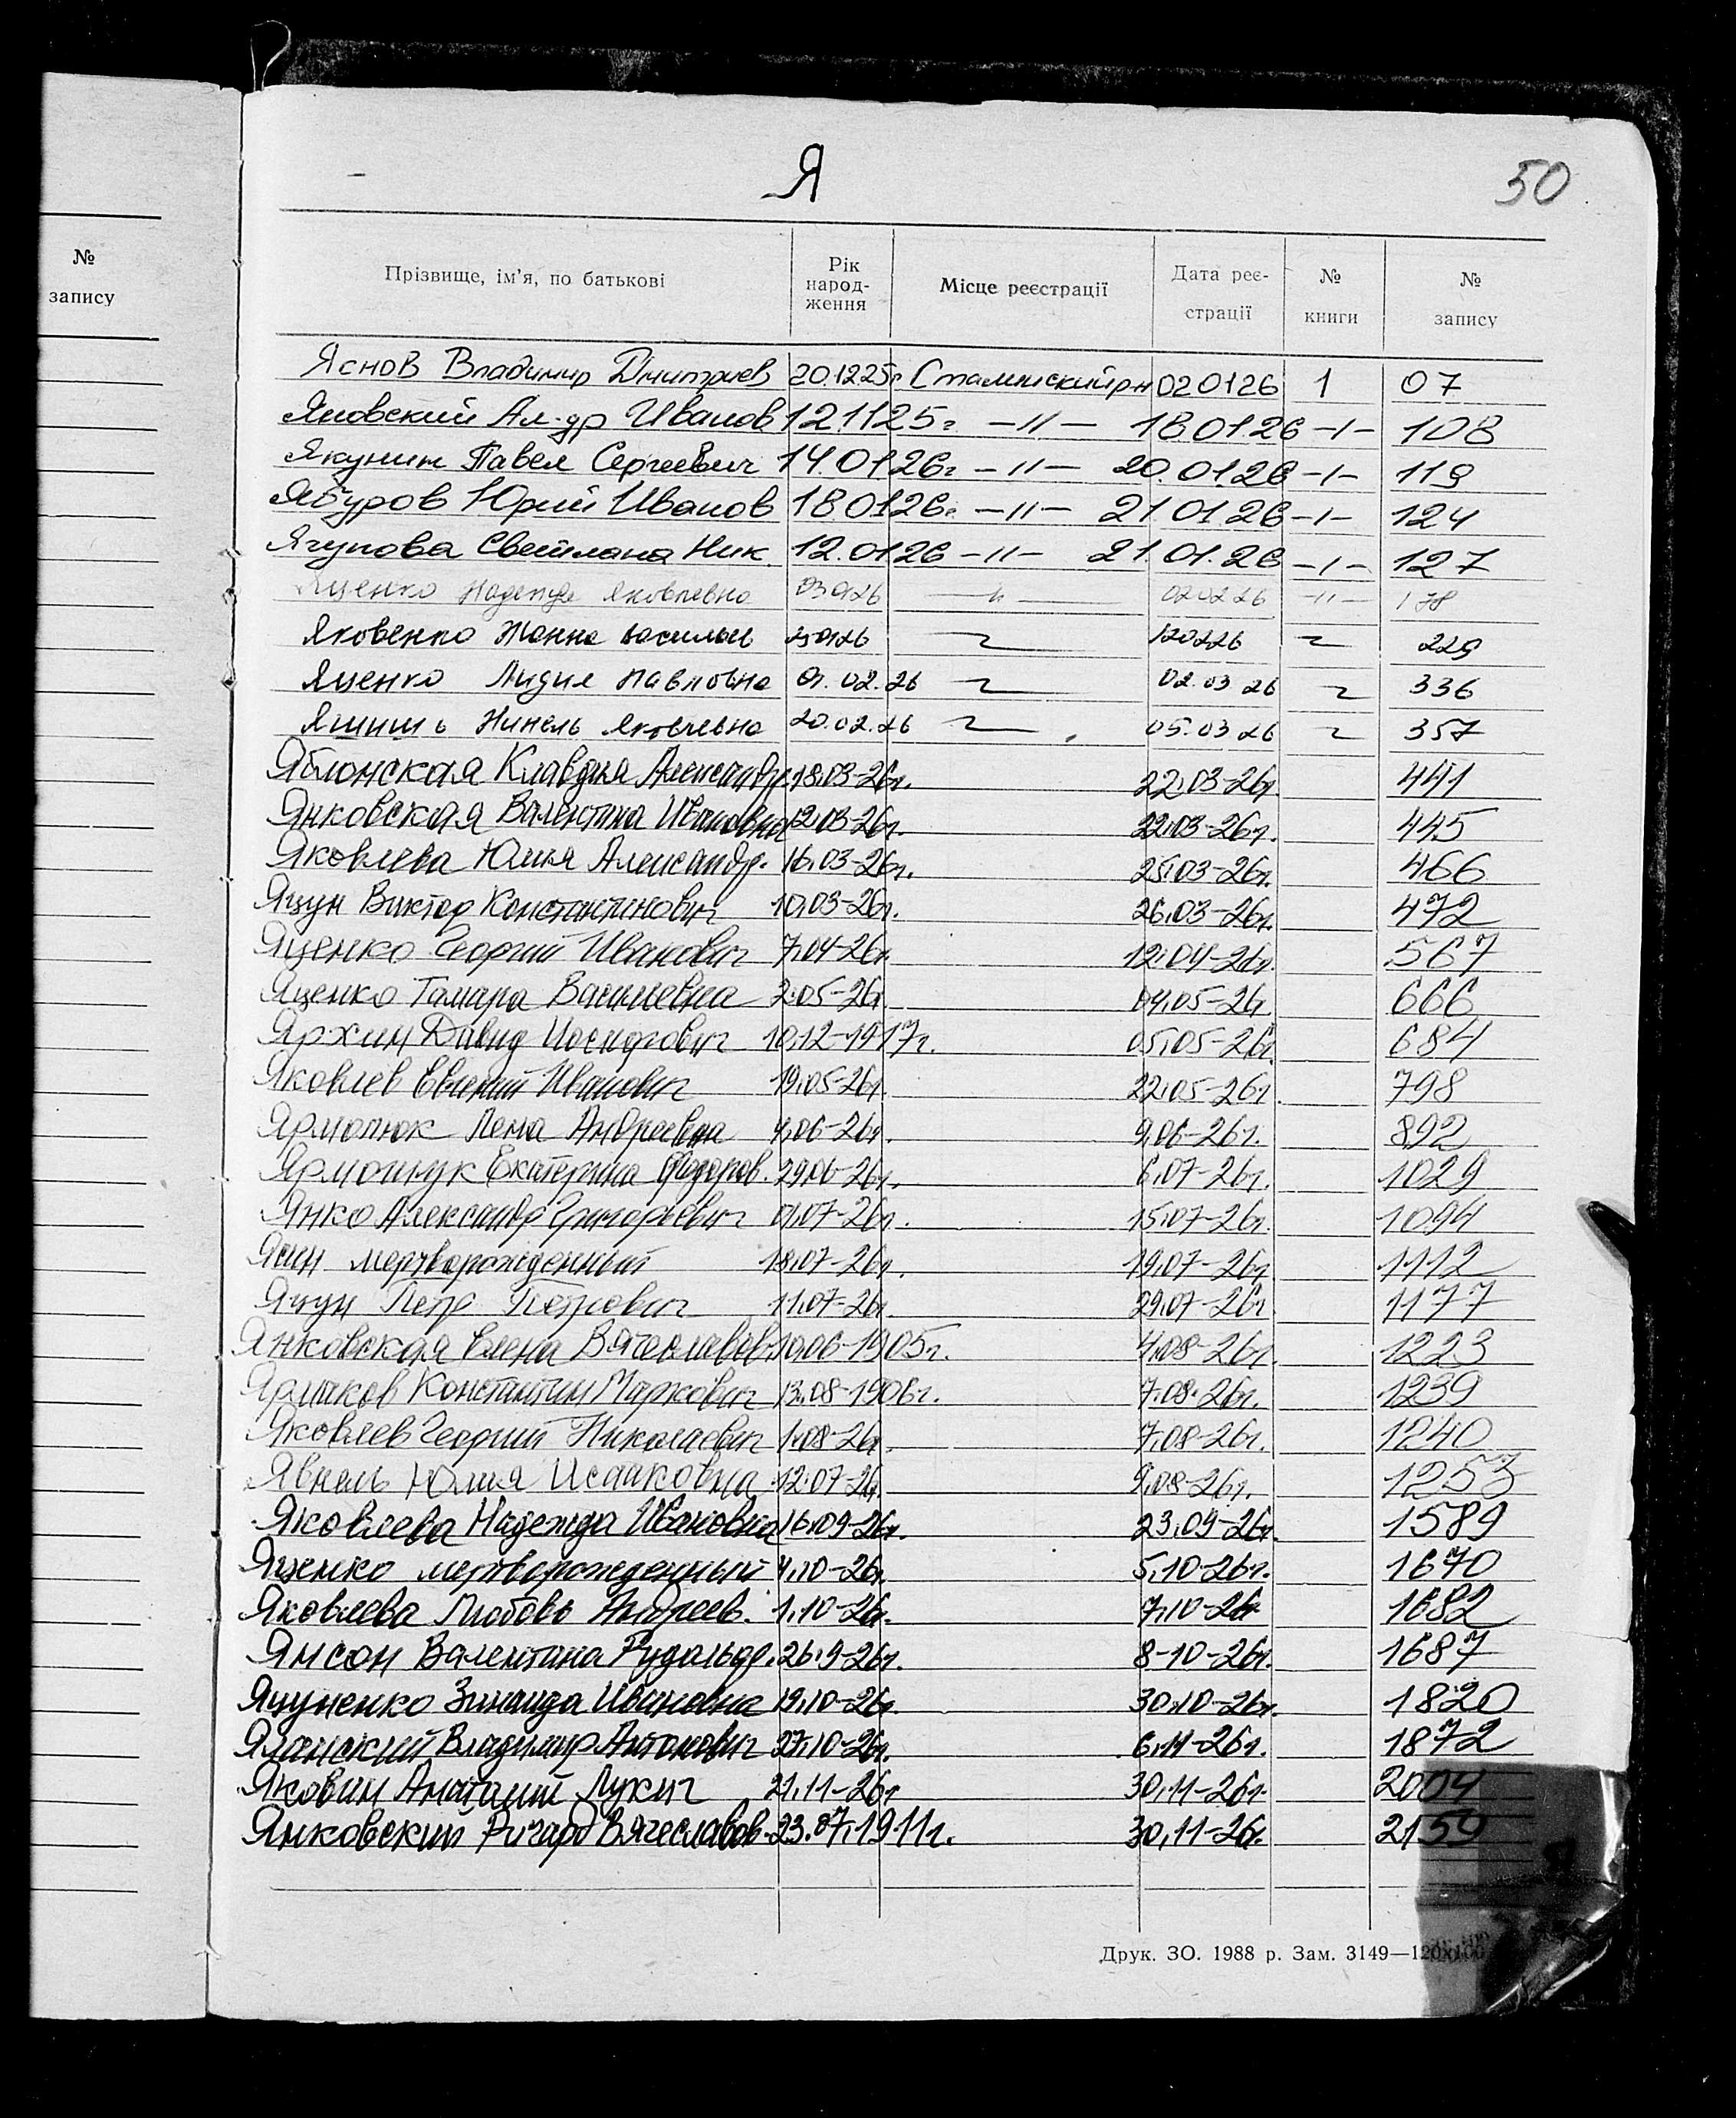 Я
50
№
запису
Прізвище, ім'я, по батькові
Рік народ-ження
Місце реєстрації
Дата реє-страції
№ книги
№ запису
Яснов Владимир Дмитриев 20.12 25г Сталинский рн 02 01 26 1 07
Яновский Ал-др Иванов 12 11 25г. -"- 18 01 26 -"- 108
Якунин Павел Сергеевич 14.01 26г -"- 20.01 26 -"- 119
Ябуров Юрий Иванов 18 01 26г. -"- 21 01 26 -"- 124
Ягупова Светлана Ник. 12.01 26 -"- 21.01.26 -"- 127
Яценко Надежда Яковлевна 03 01 26 -"- 02 02 26 -"- 178
Яковенко Жанна Васильев 25 01 26 12 02 26 229
Яценко Лидия Павловна 01.02.26 02.03 26 336
Нинель Яковлевна 20.02.26 05.03 26 357
Яблонская Клавдия Александр. 18.03-26г. 22.03-26г. 441
Янковская Валентина Ивановна 12.03-26г. 22.03-26г. 445
Яковлева Юлия Александр. 16.03-26г. 25.03-26г. 466
Яцун Виктор Константинович 10.03-26г. 26.03-26г. 472
Яценко Георгий Иванович 7.04-26г. 12.04-26г. 567
Яценко Тамара Васильевна 2.05-26г. 04.05-26г. 666
Яржин Давид Иосифович 10.12-1917г. 05.05-26г. 684
Яковлев Евгений Иванович 19.05-26г. 22.05-26г. 798
Ярмолюк Лена Андреевна 4.06-26г. 9.06-26г. 892
Екатерина Федоров. 29.06-26г. 6.07-26г. 1029
Янко Александр Григорьевич 01.07-26г. 15.07-26г. 1094
Ясин мертворожденный 18.07-26г. 19.07-26г. 1112
Яцун Петр Петрович 11.07-26г. 29.07-26г. 1177
Янковская Елена Вячеславов. 10.06-1905г. 4.08-26г. 1223
Константин Маркович 13.08-1906г. 7.08-26г. 1239
Яковлев Георгий Николаевич 1.08-26г. 7.08-26г. 1240
Явнель Юлия Исааковна 12.07-26г. 9.08-26г. 1253
Яковлева Надежда Ивановна 16.09-26г. 23.09-26г. 1589
Яценко мертворожденный 4.10-26г. 5.10-26г. 1670
Яковлева Любовь Андреев. 1.10-26г. 7.10-26г 1682
Янсон Валентина Рудольф. 26.9-26г. 8-10-26г. 1687
Яцуненко Зинаида Ивановна 19.10-26г. 30.10-26г. 1820
Владимир Антонович 27.10-26г. 6.11-26г. 1872
Яковин Анатолий Лукич 21.11-26г 30.11-26г. 2004
Янковский Ричард Вячеславов. 23.07.1911г. 30.11-26г. 2159
Друк. ЗО. 1988 р. Зам. 3149—120х100